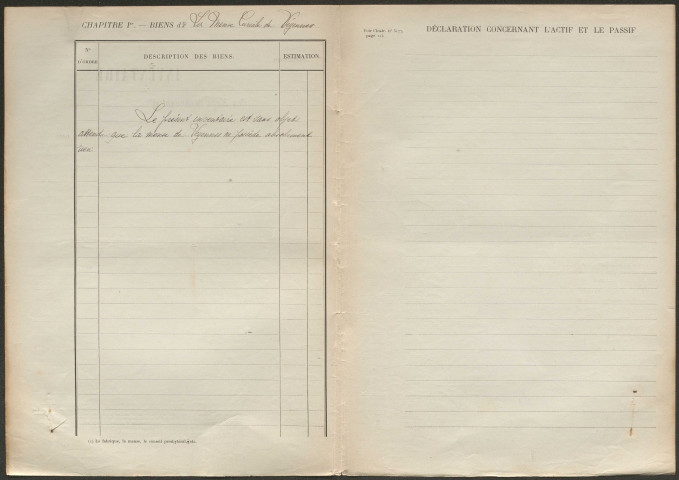 CHAPITRE Ier. — BIENS de La Mense Curiale de
N° D'ORDRE
DESCRIPTION DES BIENS
ESTIMATION.
Le présent inventaire est sans objet
attendu que la mense de possède absolument
rien
(1) La fabrique, la mense, le conseil presbytéral, etc.
page
DÉCLARATION CONCERNANT L'ACTIF ET LE PASSIF